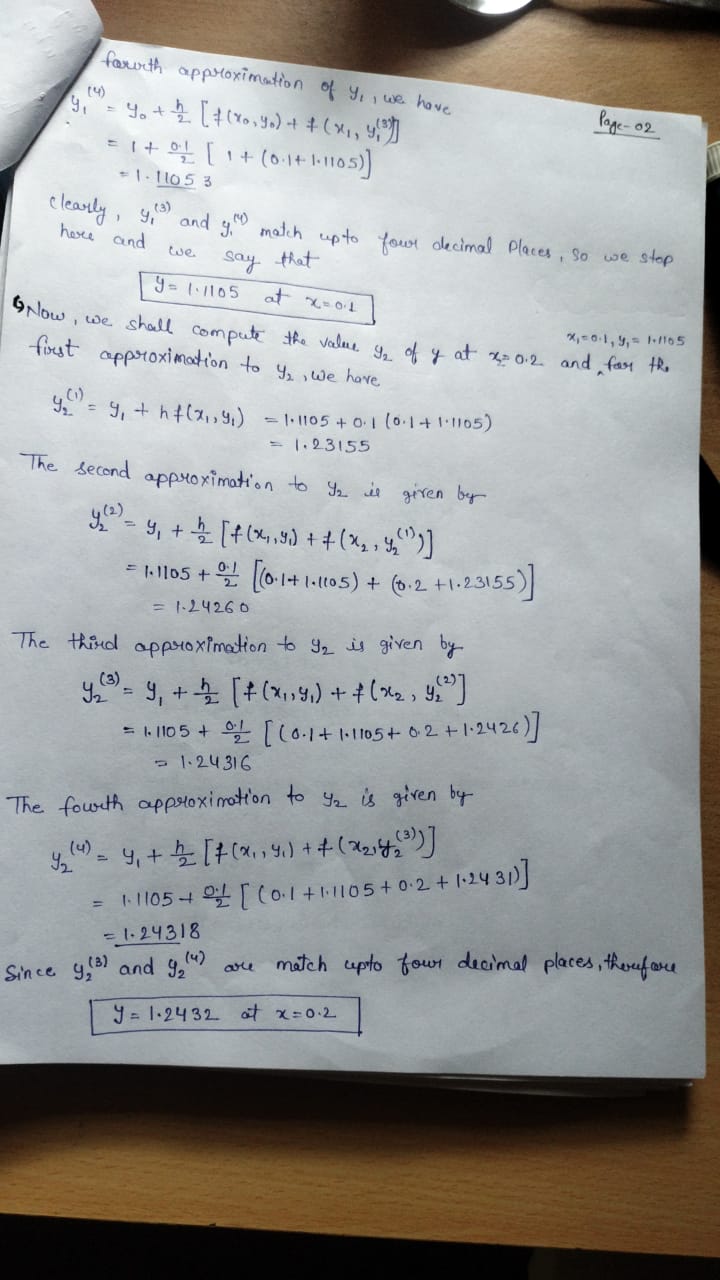 fourth approximation of y₁, we have
Page-02
y₁⁽⁴⁾ = y₀ + h/2 [f(x₀,y₀) + f(x₁, y₁⁽³⁾)]
= 1 + 0.1/2 [1 + (0.1+1.1105)]
= 1.11053
Clearly, y₁⁽³⁾ and y₁⁽⁴⁾ match upto four decimal places, so we stop
here and we say that
y = 1.1105 at x=0.1
x₁=0.1, y₁= 1.1105
Now, we shall compute the value y₂ of y at x₂=0.2 and, for the
first approximation to y₂, we have
y₂⁽¹⁾ = y₁ + hf(x₁,y₁) = 1.1105 + 0.1 (0.1+1.1105)
= 1.23155
The second approximation to y₂ is given by
y₂⁽²⁾ = y₁ + h/2 [f(x₁,y₁) + f(x₂, y₂⁽¹⁾)]
= 1.1105 + 0.1/2 [(0.1+1.1105) + (0.2+1.23155)]
= 1.24260
The third approximation to y₂ is given by
y₂⁽³⁾ = y₁ + h/2 [f(x₁,y₁) + f(x₂, y₂⁽²⁾]
= 1.1105 + 0.1/2 [(0.1+1.1105+0.2+1.2426)]
= 1.24316
The fourth approximation to y₂ is given by
y₂⁽⁴⁾ = y₁ + h/2 [f(x₁,y₁) + f(x₂,y₂⁽³⁾)]
= 1.1105 + 0.1/2 [(0.1+1.1105+0.2+1.2431)]
= 1.24318
Since y₂⁽³⁾ and y₂⁽⁴⁾ are match upto four decimal places, therefore
y = 1.2432 at x=0.2